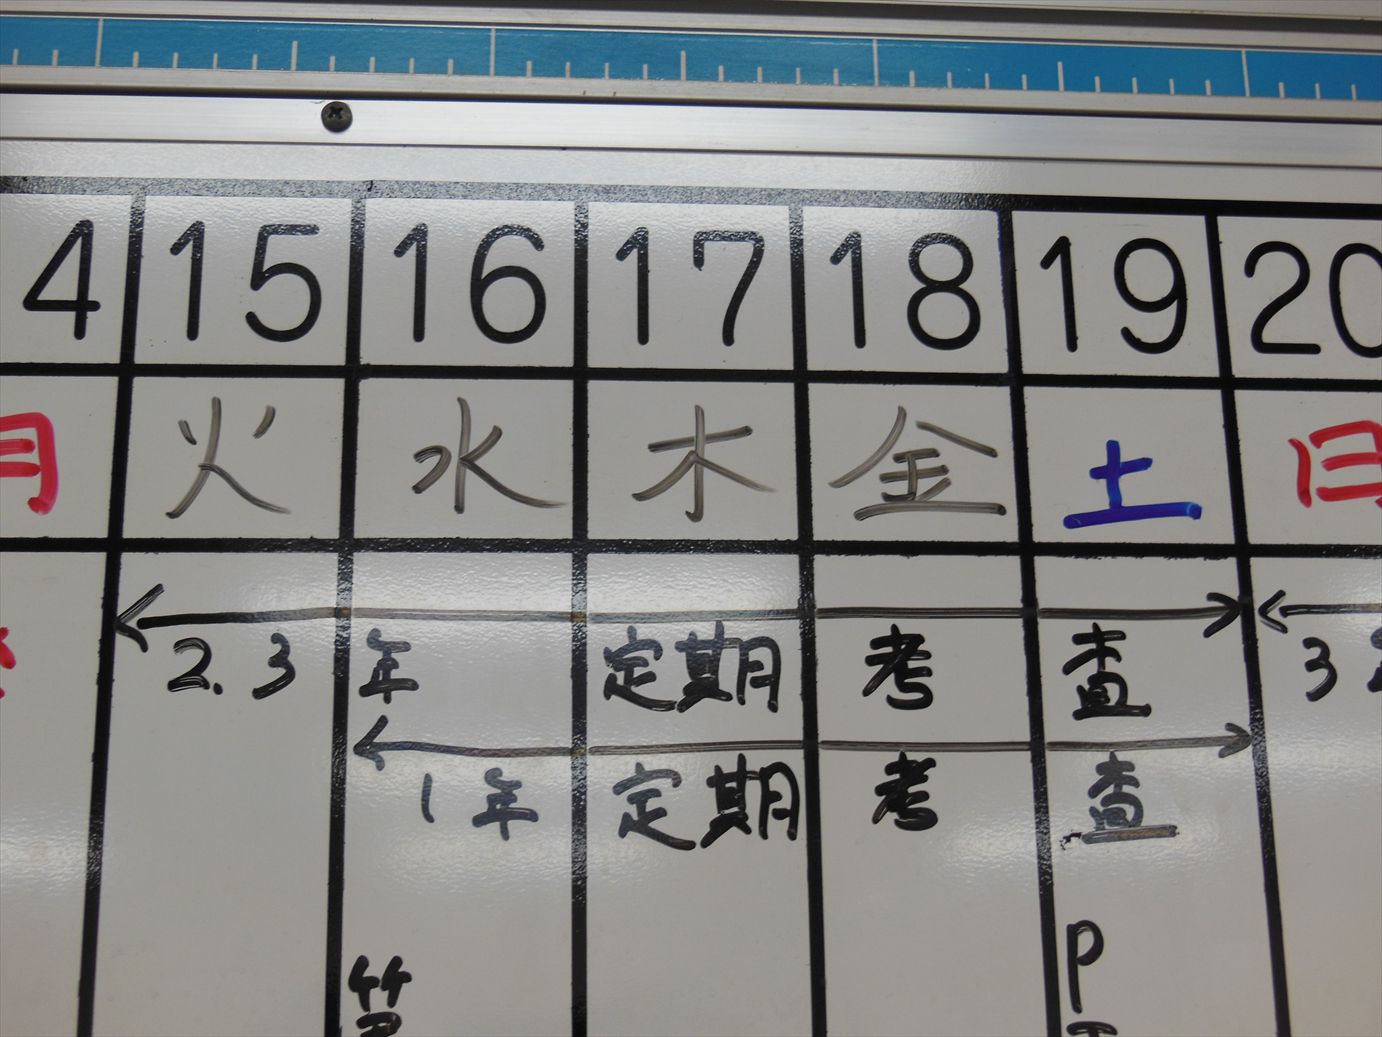 4 15 16 17 18 19 20
月 火 水 木 金 土 日
2.3年 定期考査
3
1年 定期考査
P